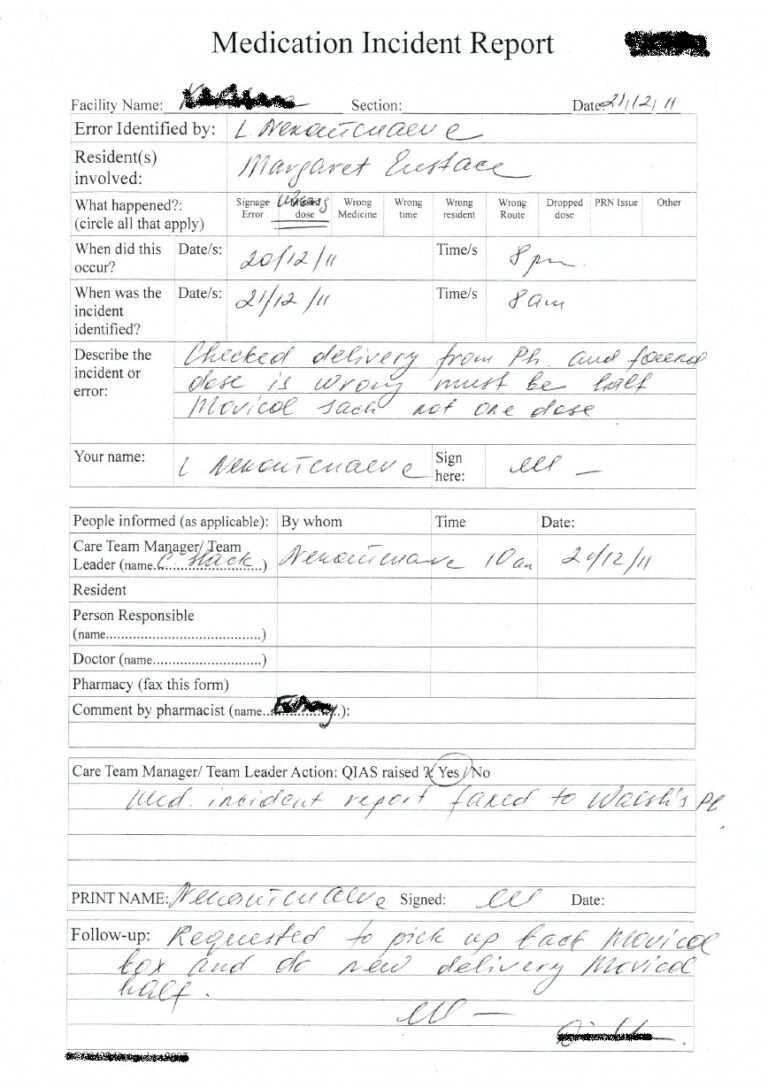 Medication Incident Report
Facility Name: Section: Date: 21/12/11
Error Identified by: L
Resident(s) involved: Margaret Eustace
What happened?: (circle all that apply) Signage Error Wrong dose Wrong Medicine Wrong time Wrong resident Wrong Route Dropped dose PRN Issue Other
When did this occur? Date/s: 20/12/11 Time/s 8pm
When was the incident identified? Date/s: 21/12/11 Time/s 8am
Describe the incident or error: Checked delivery from Ph. and found
dose is wrong must be half
Movicol sach not one dose
Your name: L Sign here:
People informed (as applicable): By whom Time Date:
Care Team Manager/ Team Leader (name. C Stack) 10am 21/12/11
Resident
Person Responsible
(name.......................................)
Doctor (name...........................)
Pharmacy (fax this form)
Comment by pharmacist (name.. ..):
Care Team Manager/ Team Leader Action: QIAS raised ? Yes / No
Med. incident report faxed to Walsh's Ph.
PRINT NAME: Signed: Date:
Follow-up: Requested to pick up back Movicol
box and do new delivery Movicol
half.